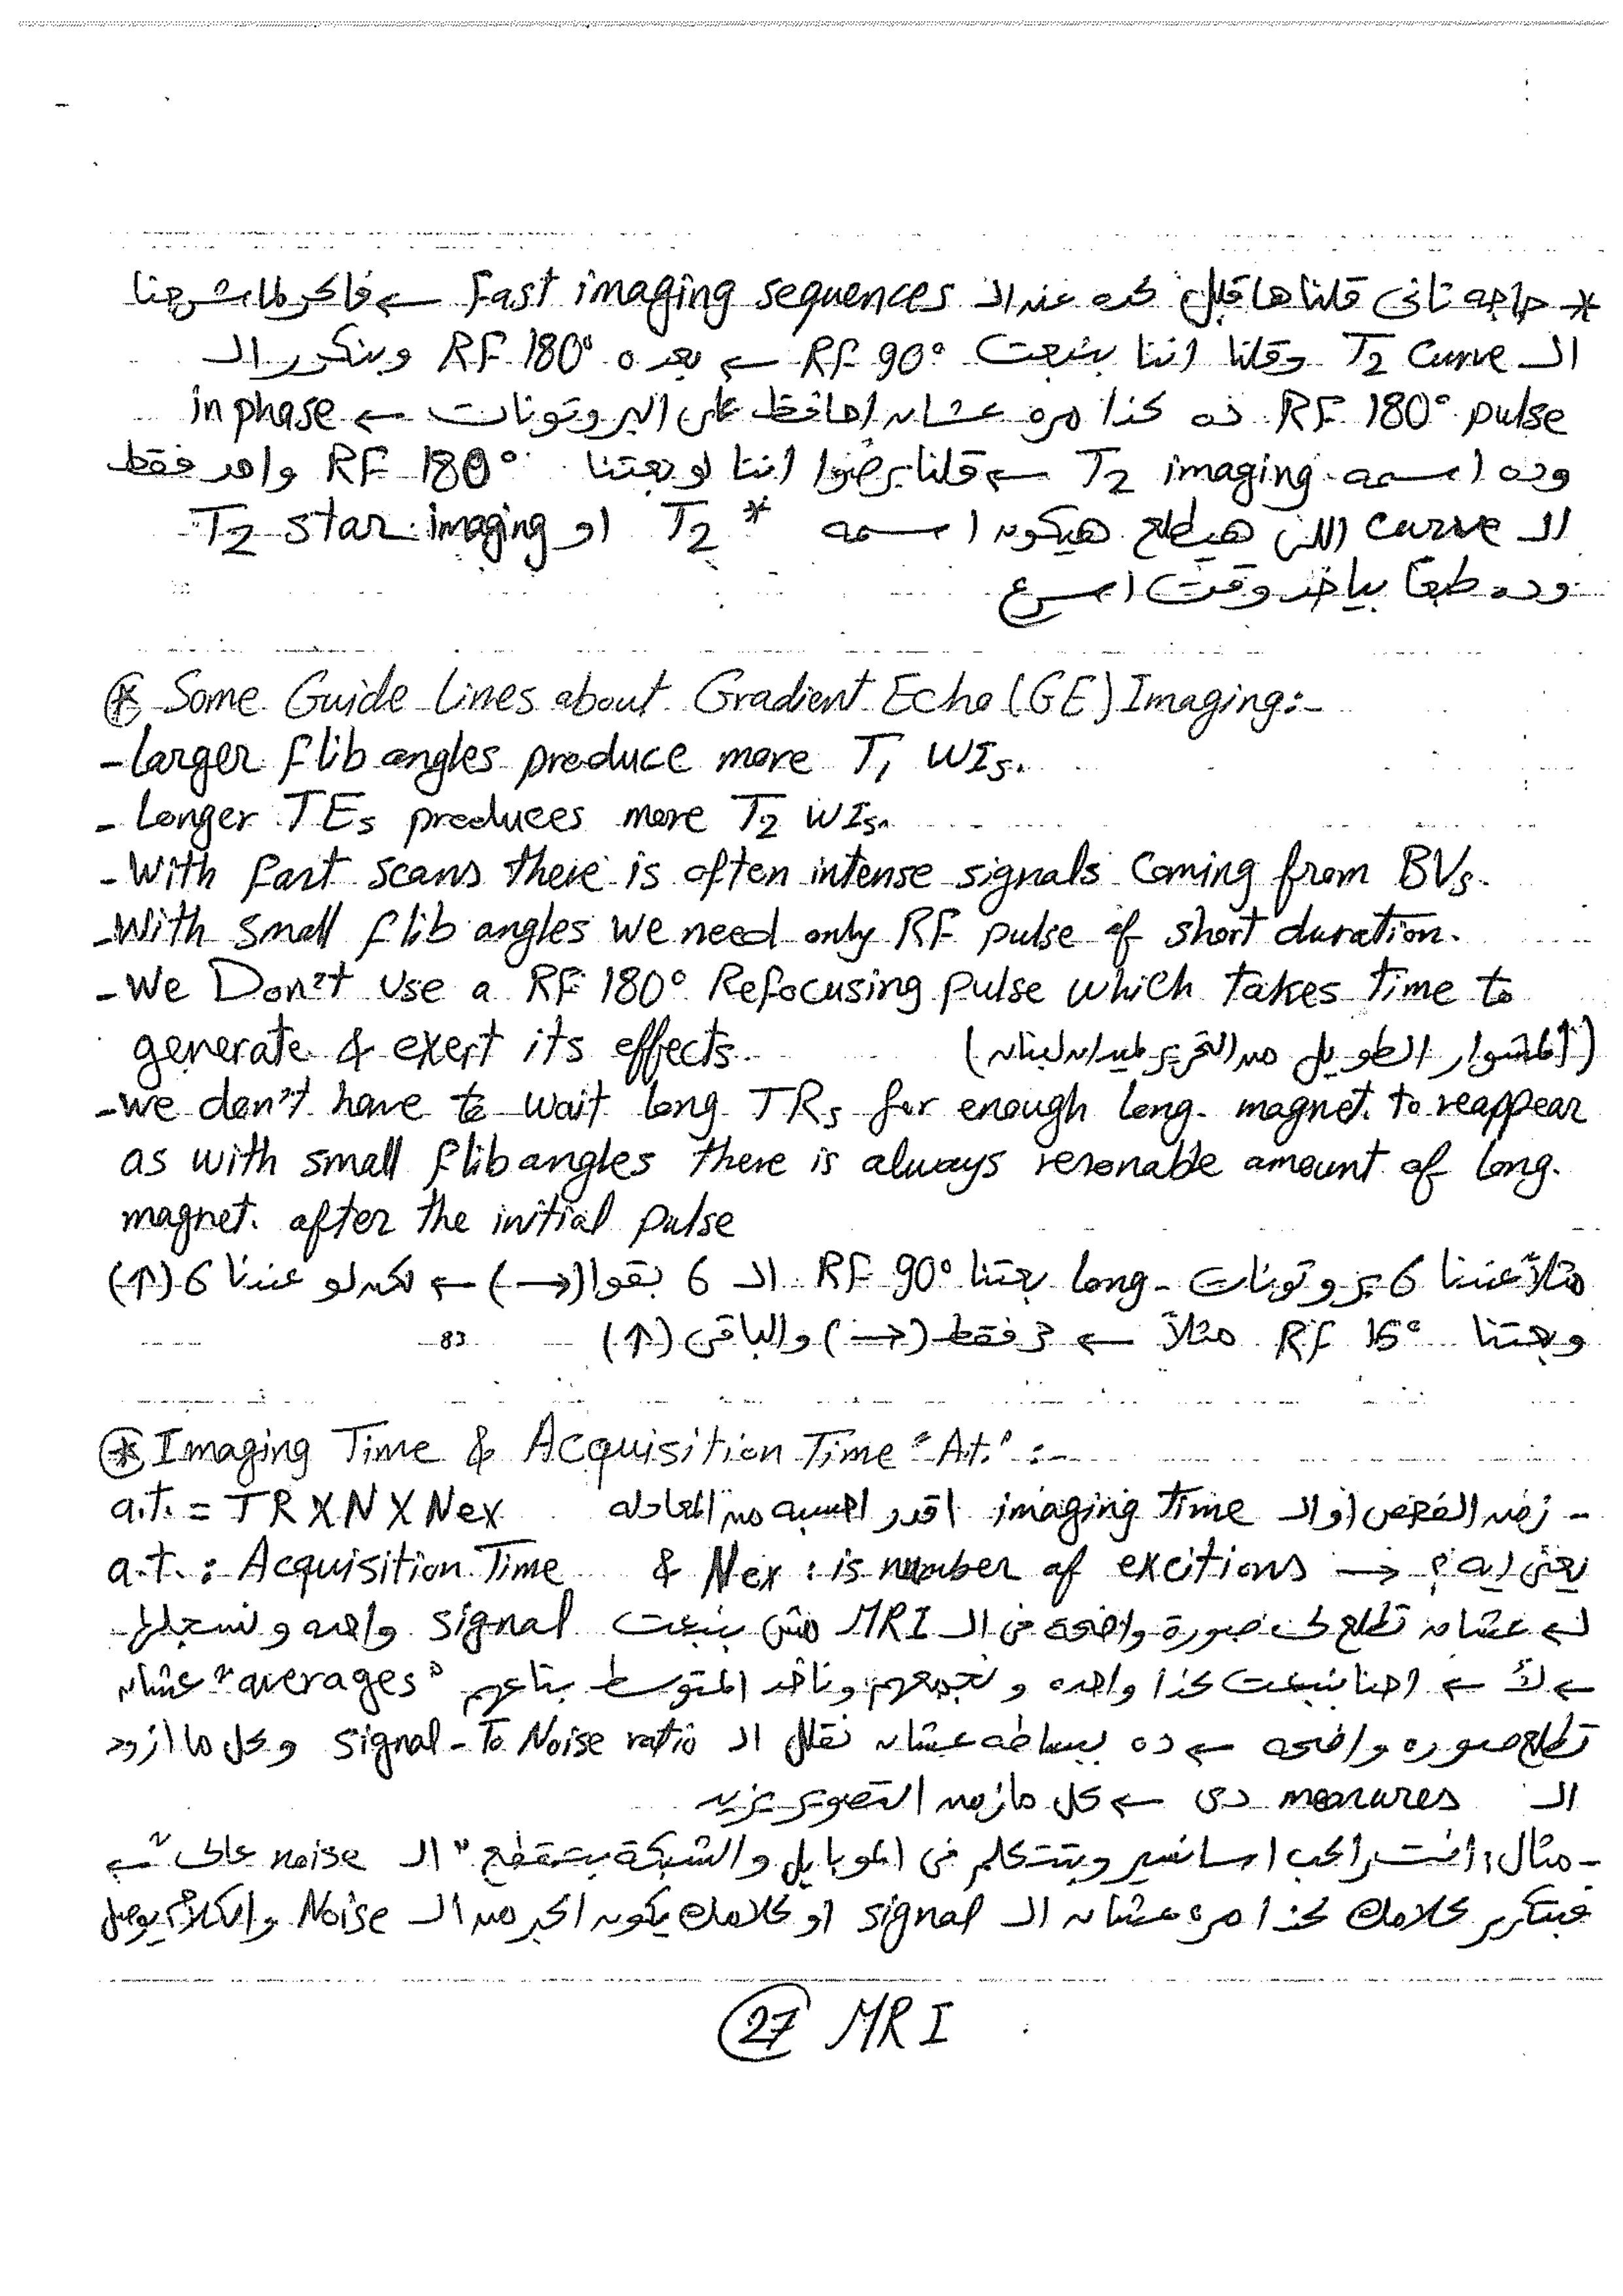 * حاجه تانى قلناها قبل كده عند الـ Fast imaging sequences ← فاكر لما شرحنا
الـ T2 Curve وقلنا اننا بنبعت RF 90° ← بعده RF 180° وبنكرر الـ
RF 180° pulse ده كذا مره عشان احافظ على البروتونات ← in phase
وده اسمه T2 imaging ← قلنا برضوا اننا لو بعتنا RF 180° واحد فقط
الـ curve اللى هيطلع هيكون اسمه T2 * او T2 star imaging
وده طبعاً بياخد وقت اسرع
* Some Guide Lines about Gradient Echo (GE) Imaging:-
- Larger flib angles produce more T1 WIs.
- Longer TEs produces more T2 WIs.
- With fast scans there is often intense signals Coming from BVs.
- With small flib angles we need only RF pulse of short duration.
- We Don't use a RF 180° Refocusing pulse which takes time to
generate & exert its effects. (المشوار الطويل من التحرير لميدان لبنان)
- we don't have to wait long TRs for enough long. magnet. to reappear
as with small flib angles there is always resonable amount of long.
magnet. after the initial pulse
مثلاً عندنا 6 بروتونات long- بعتنا RF 90° الـ 6 بقوا (→) ← لكن لو عندنا 6 (↑)
وبعتنا RF 15° مثلاً ← 3 فقط (→) والباقى (↑)
83
* Imaging Time & Acquisition Time "A.t." :-
- زمن الفحص او الـ imaging time اقدر احسبه من المعادله a.t. = TR X N X Nex
a.t. : Acquisition Time & Nex : is number of excitions → يعنى ايه ؟
← عشان تطلع لى صورة واضحه فى الـ MRI مش بنبعت signal واحده ونسجلها
← لأ ← احنا بنبعت كذا واحده ونجمعهم وناخد المتوسط بتاعهم "averages" عشان
تطلع صوره واضحه ← ده ببساطه عشان نقلل الـ Signal-To Noise ratio وكل ما ازود
الـ measures دى ← كل ما زمن التصوير يزيد
- مثال: انت راكب اسانسير وبتتكلم فى الموبايل والشبكة بتقطع "الـ noise عالى" ←
فبتكرر كلامك كذا مره عشان الـ signal او كلامك يكون اكبر من الـ Noise والكلام يوصل
27 MRI